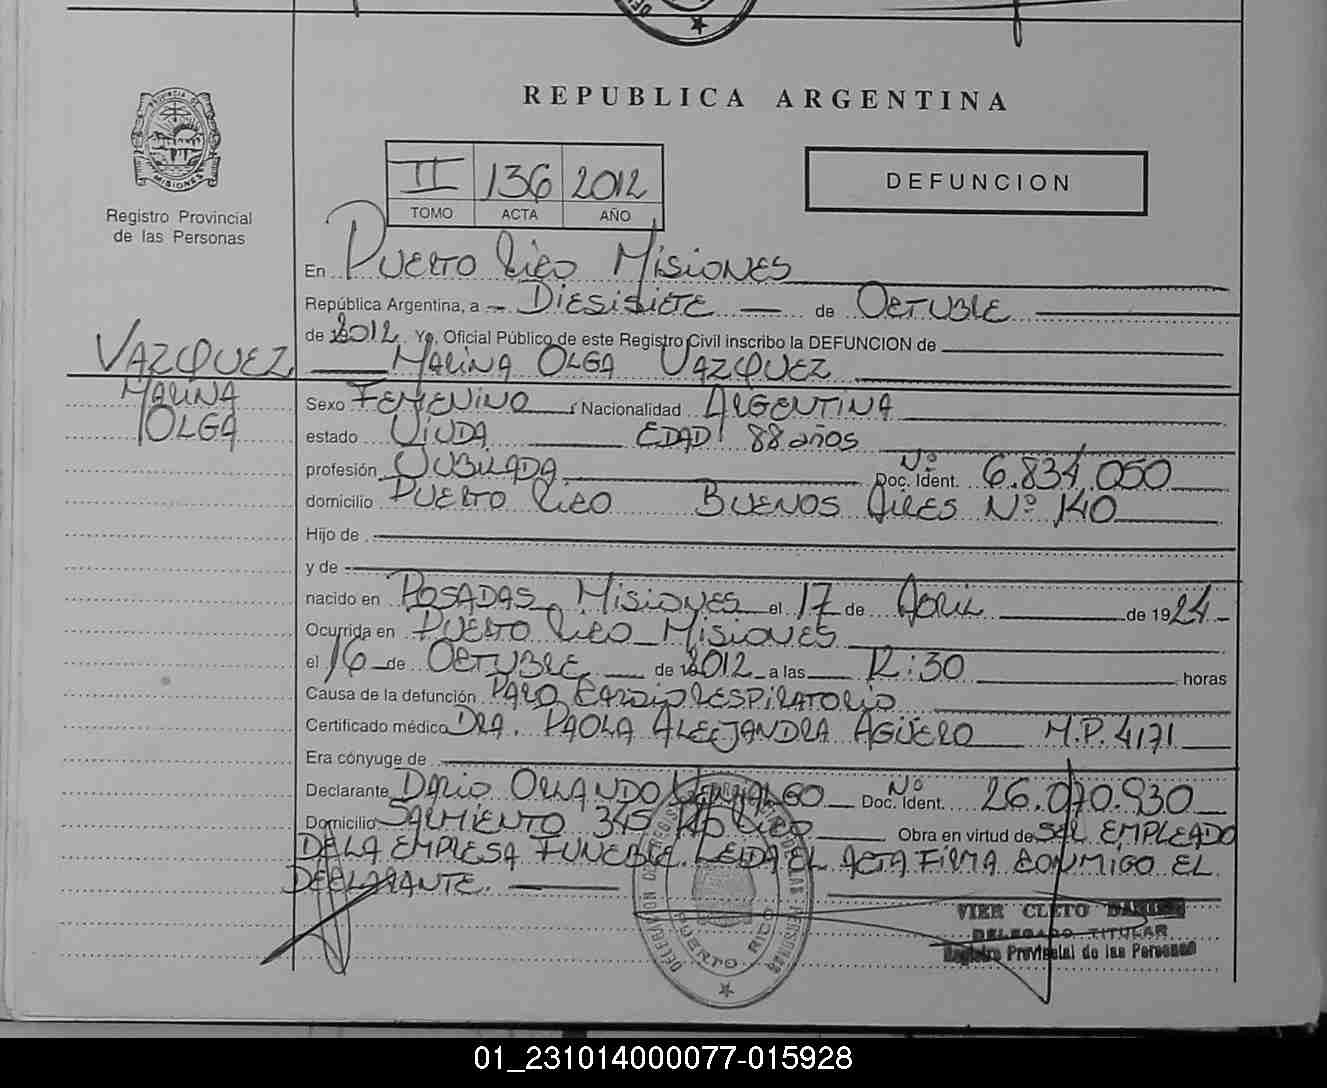 REPUBLICA ARGENTINA
PROVINCIA DE
MISIONES
Registro Provincial
de las Personas
II 136 2012
TOMO ACTA AÑO
DEFUNCION
En PUERTO RICO MISIONES
República Argentina, a DIESISIETE de OCTUBRE
de 2012 Yo, Oficial Público de este Registro Civil inscribo la DEFUNCION de
VAZQUEZ
MARINA OLGA VAZQUEZ
MARINA
OLGA
Sexo FEMENINO Nacionalidad ARGENTINA
estado VIUDA EDAD: 88 años
profesión JUBILADA Nº Doc. Ident. 6.834.050
domicilio PUERTO RICO BUENOS AIRES Nº 140
Hijo de
y de
nacido en POSADAS, MISIONES el 17 de ABRIL de 1924
Ocurrida en PUERTO RICO MISIONES
el 16 de OCTUBRE de 2012 a las 12:30 horas
Causa de la defunción PARO CARDIORESPIRATORIO
Certificado médico DRA. PAOLA ALEJANDRA AGÜERO M.P. 4171
Era cónyuge de
Declarante DARIO ORLANDO Nº Doc. Ident. 26.070.930
Domicilio SARMIENTO 345 PTO RICO Obra en virtud de SER EMPLEADO
DE LA EMPRESA FUNEBRE. LEIDA EL ACTA FIRMA CONMIGO EL
DECLARANTE.
PUERTO RICO
VIER CLETO
DELEGADO TITULAR
Registro Provincial de las Personas
01_231014000077-015928